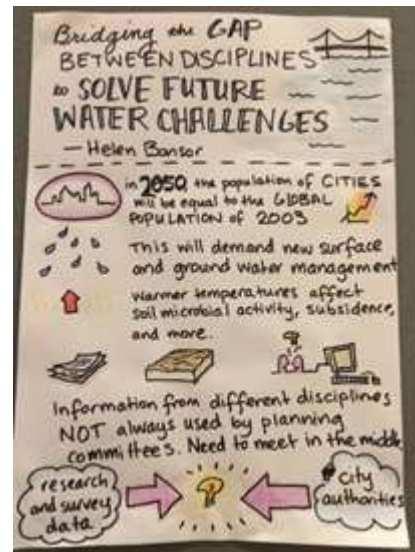 Bridging the GAP
BETWEEN DISCIPLINES
to SOLVE FUTURE
WATER CHALLENGES
— Helen Bonsor
in 2050, the population of CITIES
will be equal to the GLOBAL
POPULATION of 2003
This will demand new surface
and ground water management
Warmer temperatures affect
soil microbial activity, subsidence,
and more.
Information from different disciplines
NOT always used by planning
committees. Need to meet in the middle
research
and survey
data
city
authorities